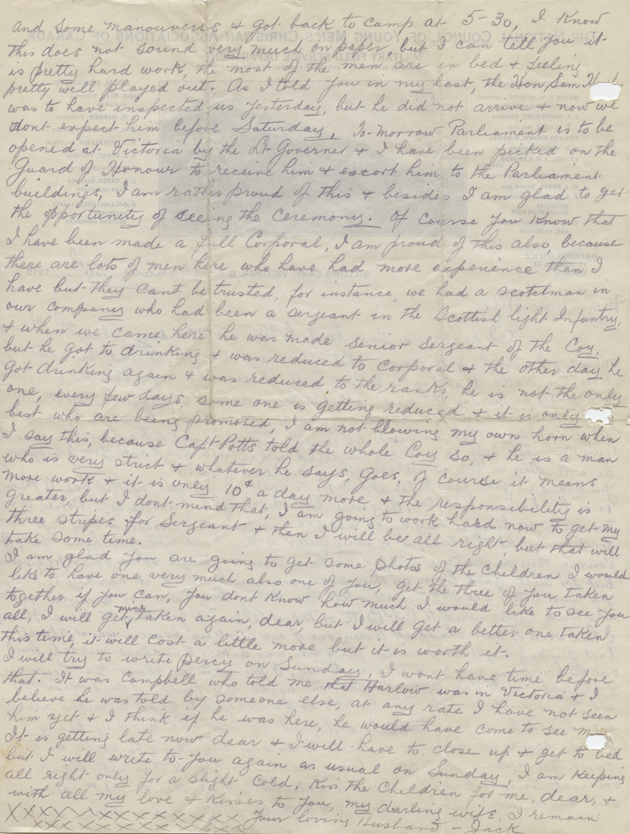 and some manouveres & got back to camp at 5-30, I know
this does not sound very much on paper, but I can tell you it
is pretty hard work, the most of the men are in bed & feeling
pretty well played out. As I told you in my last, the Hon Sam
was to have inspected us yesterday, but he did not arrive & now we
dont expect him before Saturday, To-morrow Parliament is to be
opened at Victoria by the Lt-Governer & I have been picked on the
Guard of Honour to receive him & escort him to the Parliament
buildings, I am rather proud of this & besides I am glad to get
the opportunity of seeing the Ceremony. Of course you know that
I have been made a full Corporal, I am proud of this also, because
there are lots of men here who have had more experience then I
have but they cant be trusted, for instance, we had a scotchman in
our company who had been a sergeant in the Scottish light Infantry,
& when we came here he was made senior sergeant of the Coy,
but he got to drinking & was reduced to Corporal & the other day he
got drinking again & was reduced to the ranks, he is not the only
one, every few days some one is getting reduced & it is only
best who are being promoted, I am not blowing my own horn when
I say this, because Capt Potts told the whole Coy so, & he is a man
who is very strict & whatever he says, goes, of course it means
more work & it is only 10¢ a day more & the responsibility is
greater, but I dont mind that, I am going to work hard now to get my
three stripes for Sergeant & then I will be all right but that will
take some time.
I am glad you are going to get some photos of the Children I would
like to have one very much also one of you, get the three of you taken
together if you can, you dont know how much I would like to see you
all, I will get mine taken again, dear, but I will get a better one taken
this time, it will cost a little more but it is worth it.
I will try to write Percy on Sunday, I wont have time before
that. It was Campbell who told me that Harlow was in Victoria & I
believe he was told by someone else, at any rate I have not seen
him yet & I think if he was here, he would have come to see me
It is getting late now dear & I will have to close up & get to bed
but I will write to you again as usual on Sunday, I am keeping
all right only for a slight cold, Kiss the Children for me, dear, &
with all my love & Kisses to you, my darling wife, I remain
XXXXXXXXXXXXX Your loving Husband Jack